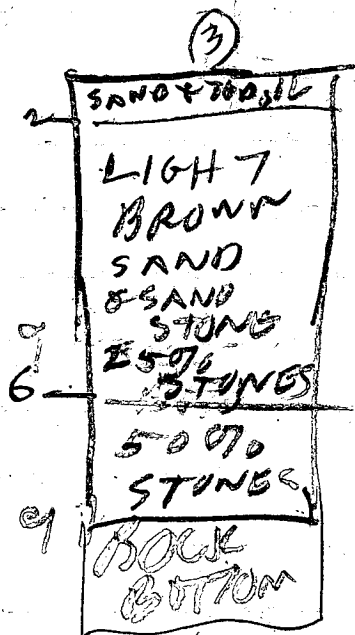 3
SAND & TOPSOIL
2
LIGHT
BROWN
SAND
& SAND
STONE
± 50%
STONES
6
50%
STONES
9
ROCK
BOTTOM